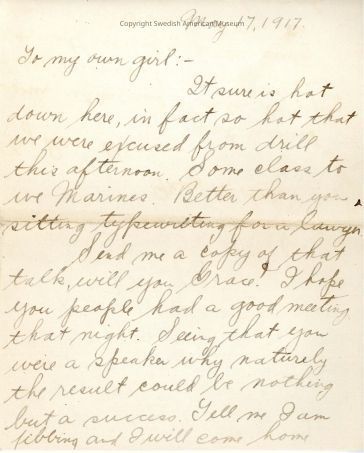 Copyright Swedish American Museum
May 17, 1917.
To my own girl:-
It sure is hot
down here, in fact so hot that
we were excused from drill
this afternoon. Some class to
we Marines. Better than you
sitting typewriting for a lawyer.
Send me a copy of that
talk, will you Grace? I hope
you people had a good meeting
that night. Seeing that you
were a speaker why naturely
the result could be nothing
but a success. Tell me I am
fibbing and I will come home